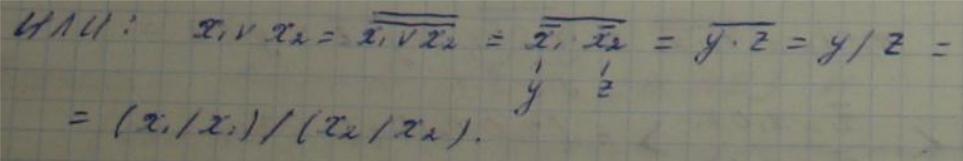 ИЛИ: x₁ ∨ x₂ = \overline{\overline{x₁ ∨ x₂}} = \overline{\overline{x₁} · \overline{x₂}} = \overline{y · z} = y / z =
y z
= (x₁ / x₁) / (x₂ / x₂).